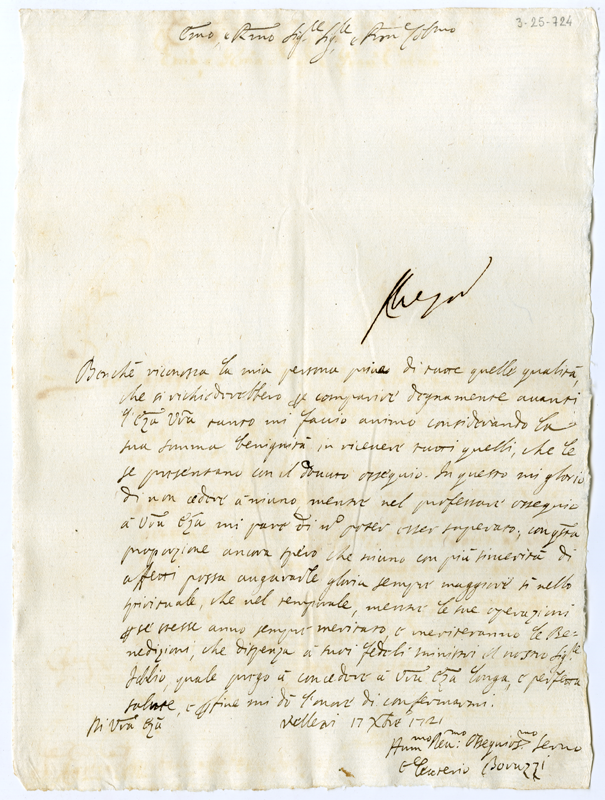 3-25-724
Emo, e Rmo Sig.re Sig.re e Pron.e Colmo
Benchè riconosca la mia persona priva di tutte quelle qualità,
che si richiederebbero p comparire degnamente avanti
l'Ecza Vra tanto mi faccio animo considerando la
sua somma benignità in ricevere tutti quelli, che le
se presentano con il dovuto ossequio. In questo mi glorio
di non cedere à niuno mentre nel professare ossequio
à Vra Ecza mi pare di nō poter esser superato; con qsta
proporzione ancora spero che niuno con più sincerità di
affetti possa augurarle gloria sempre maggiore sì nello
spirituale, che nel temporale, mentre le sue operazioni
p se stesse anno sempre meritato, e meriteranno le Be-
nedizioni, che dispenza à suoi fedeli ministri il nostro Sig.re
Iddio, quale prego à concedere à Vra Ecza longa, e perfetta
salute, e p fine mi dò l'onore di confermarmi.
Di Vra Ecza
Velletri 17 Xbre 1721
Hummo Devmo: Obsequiosmo Servo
Eleuterio Boruzzi